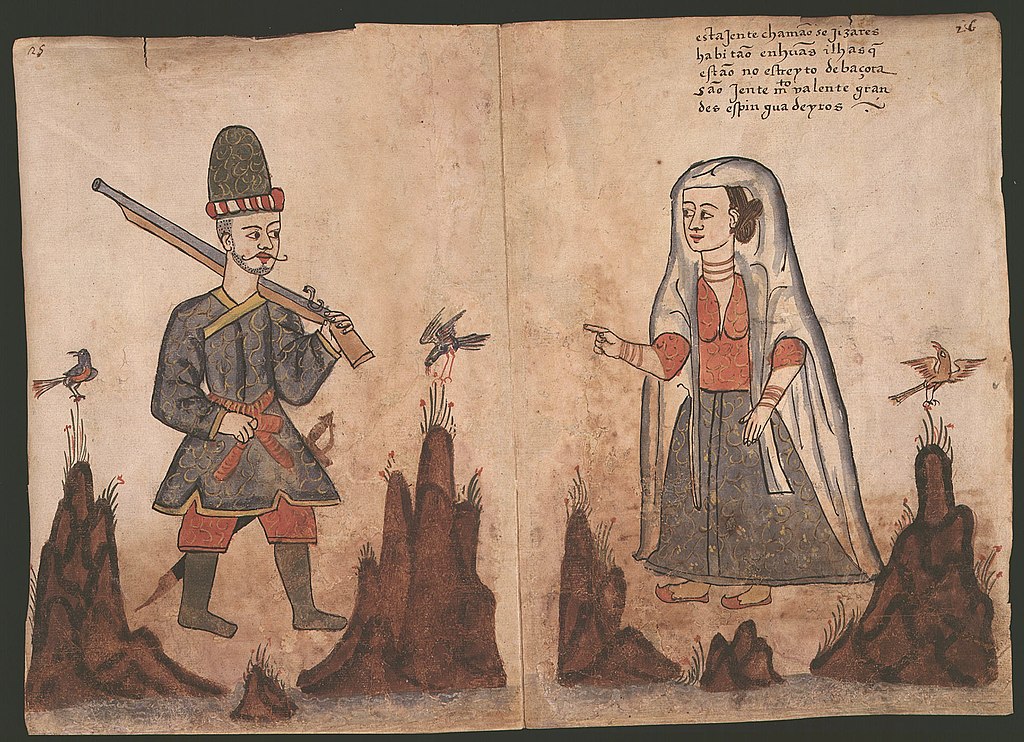 25
26
esta Jente chamão se Jizares
habitão enhuãs ilhas q̃
estão no estreyto de baçora
são Jente m̃ᵗᵒ valente gran
des espinguadeyros